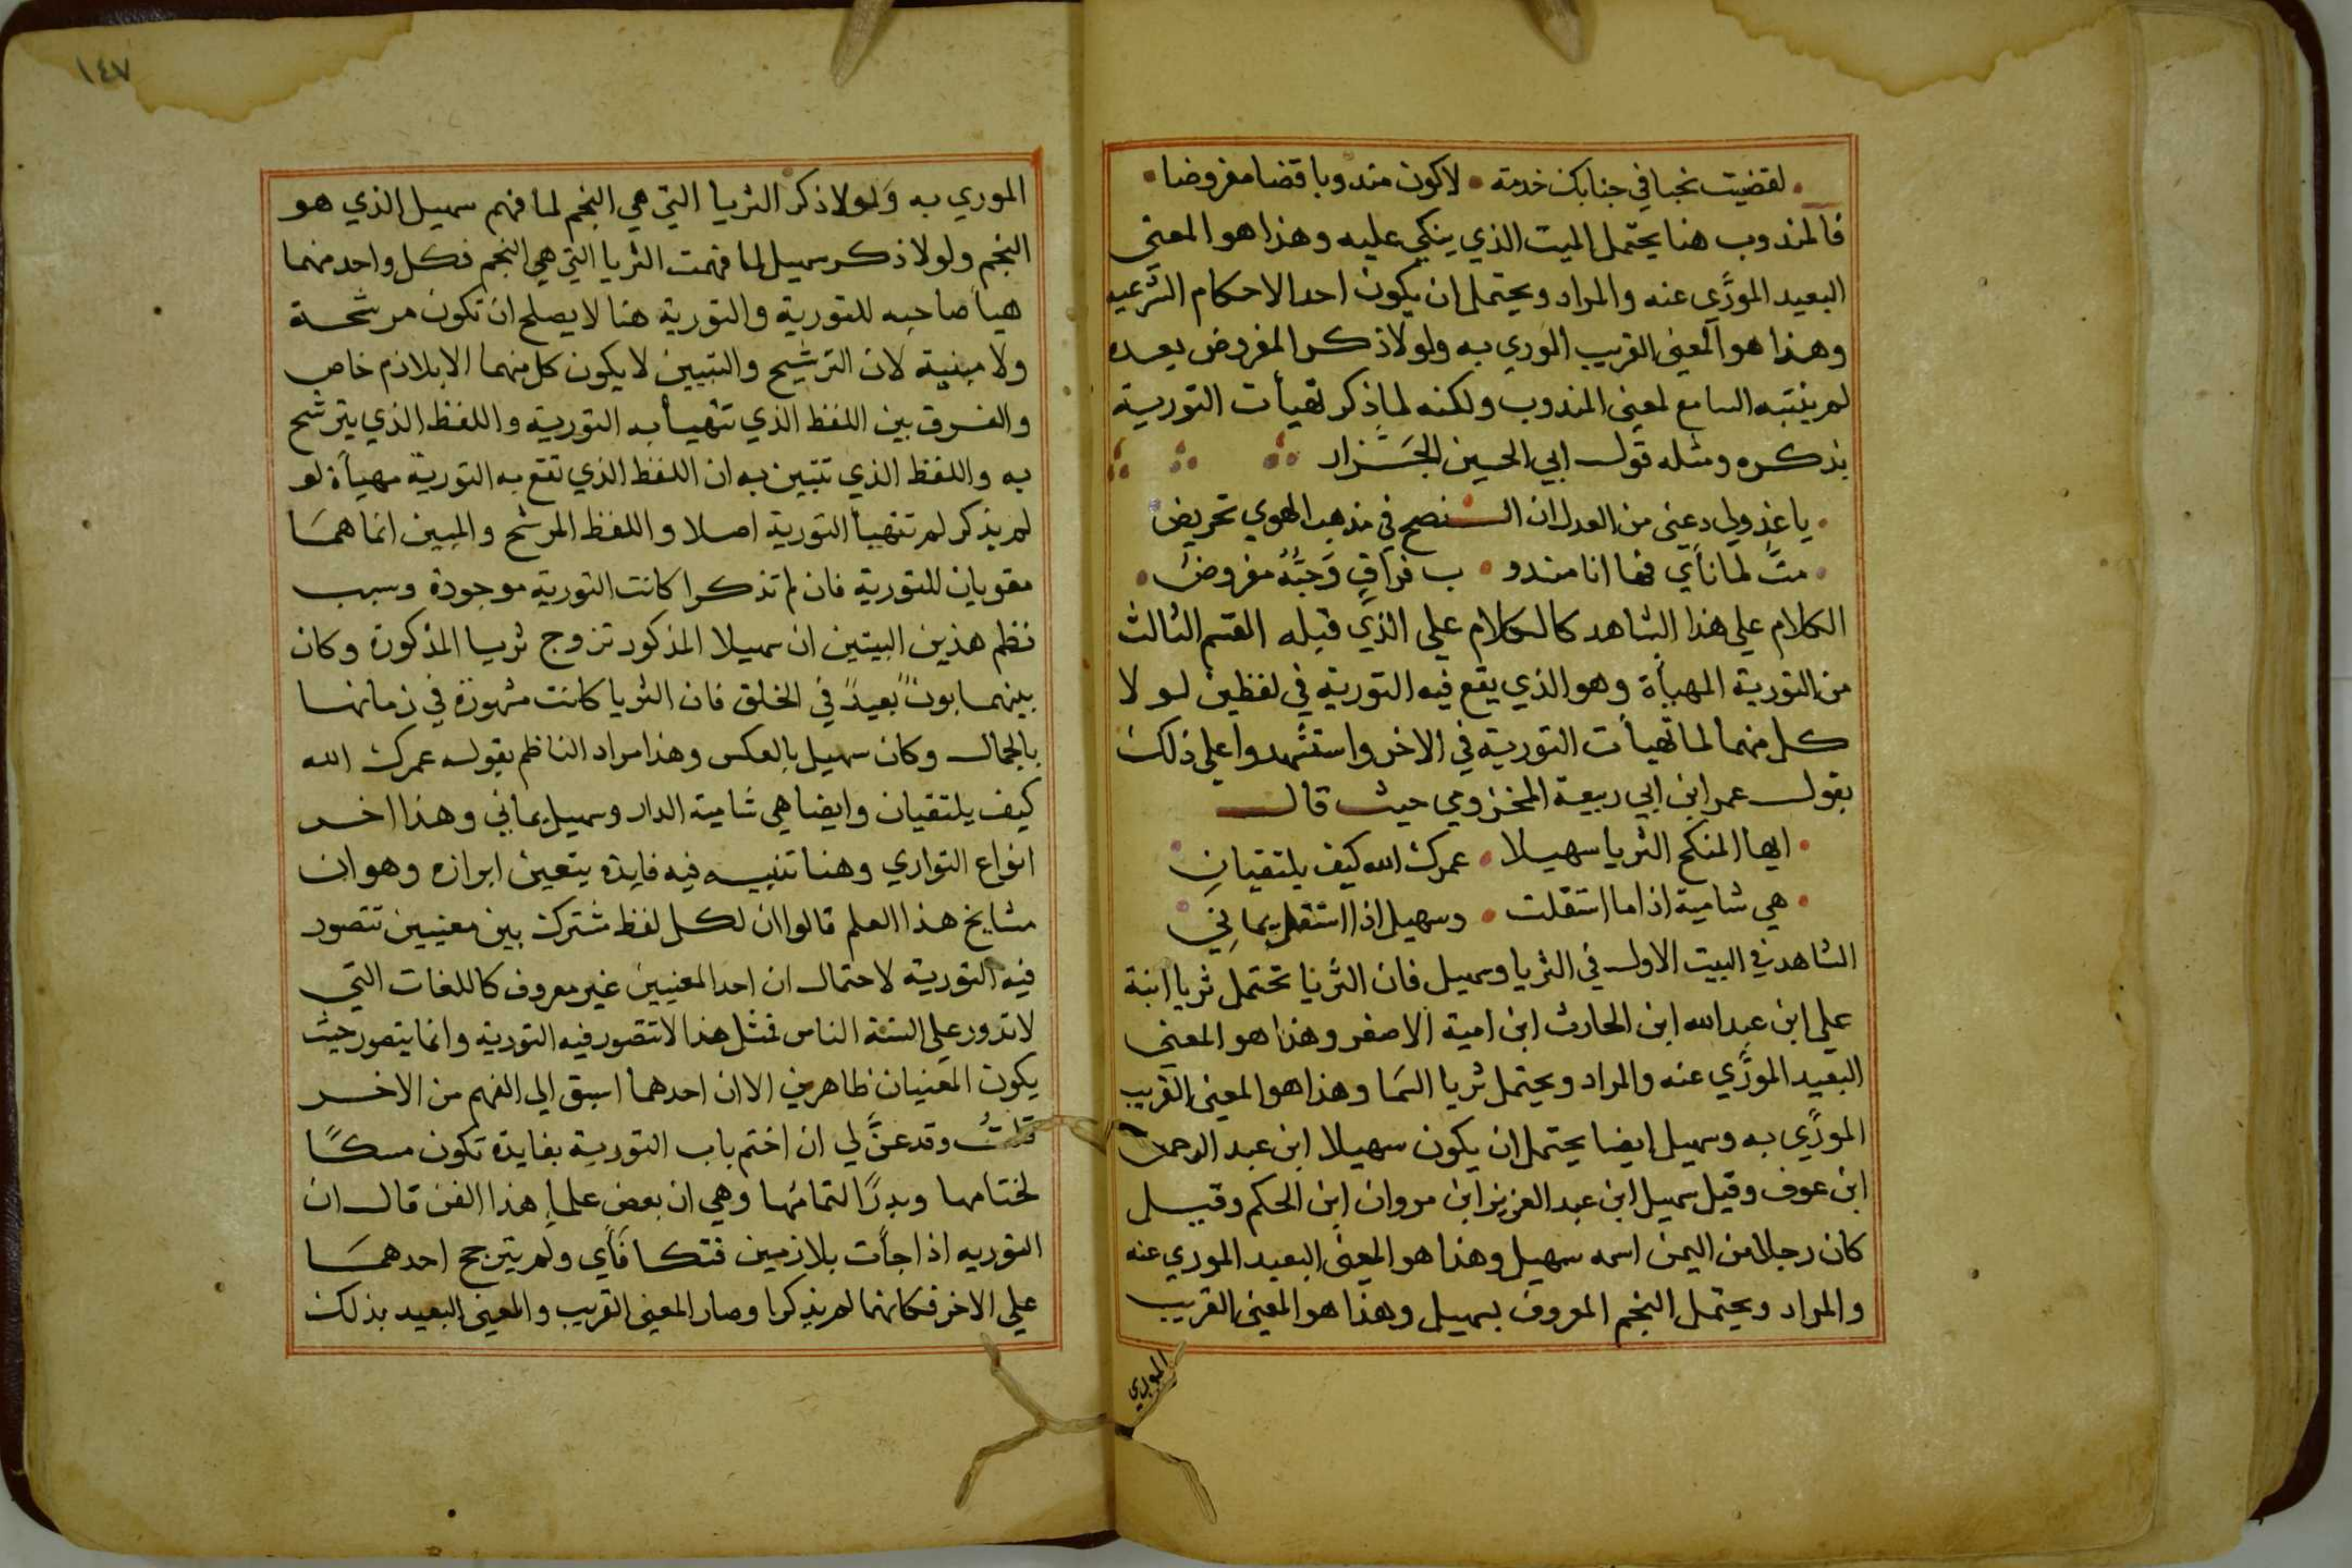 لقضيت نحبا في جنابك خدمة • لاكون مندوبا قضا مفروضا •
فالمندوب هنا يحتمل الميت الذي يبكي عليه وهذا هو المعني
البعيد المورَّي عنه والمراد ويحتمل ان يكون احد الاحكام الشرعيه
وهذا هو المعنى القريب الموري به ولولا ذكر المفروض بعده
لم ينتبه السامع لمعنى المندوب ولكنه لما ذكر تهيأت التورية
بذكره ومثله قول ابي الحسين الجَـزار
• يا عذولي دعني من العدل ان الـنصح في مذهب الهوي تحريض
• متّ لما نأي فها انا مندو • ب فراقٍ وَحبُّهُ مفروضُ •
الكلام علي هذا الشاهد كالكلام علي الذي قبله القسم الثالث
من التورية المهيأة وهو الذي يقع فيه التورية في لفظين لولا
كل منهما لما تهيأت التورية في الاخر واستشهدوا علي ذلك
بقول عمر ابن ابي ربيعة المخزومي حيث قال
• ايها المنكح الثريا سهيلا • عمرك الله كيف يلتقيانِ
• هي شامية اذا ما استقلت • وسهيل اذا استقل يمانِي
الشاهد في البيت الاول في الثريا وسهيل فان الثريا تحتمل ثريا ابنة
علي ابن عبد الله ابن الحارث ابن امية الاصغر وهذا هو المعني
البعيد المورَّي عنه والمراد ويحتمل ثريا السَما وهذا هو المعنى القريب
المورَّي به وسهيل ايضا يحتمل ان يكون سهيلا ابن عبد الرحمن
ابن عوف وقيل سهيل ابن عبد العزيز ابن مروان ابن الحكم وقيل
كان رجلا من اليمن اسمه سهيل وهذا هو المعنى البعيد الموري عنه
والمراد ويحتمل النجم المعروف بسهيل وهذا هو المعنى القريب
الموري
١٤٧
الموري به وَلولا ذكر الثريا التي هي النجم لما فهم سهيل الذي هو
النجم ولولا ذكر سهيل لما فهمت الثريا التي هي النجم فكل واحد منهما
هيأ صاحبه للتورية والتورية هنا لا يصلح ان تكون مرشحة
ولا مبنية لان الترشيح والتبيين لا يكون كل منهما الا بلازم خاص
والفرق بين اللفظ الذي تتهيأ به التورية واللفظ الذي يترشح
به واللفظ الذي تتبين به ان اللفظ الذي تقع به التورية مهيأة لو
لم يذكر لم تتهيأ التورية اصلا واللفظ المرشح والمبين انما همَا
مقويان للتورية فان لم تذكرا كانت التورية موجودة وسبب
نظم هذين البيتين ان سهيلا المذكور تزوج ثريا المذكورة وكان
بينهما بون بعيد في الخلق فان الثريا كانت مشهورة في زمانها
بالجمال وكان سهيل بالعكس وهذا مراد الناظم بقوله عمرك الله
كيف يلتقيان وايضا هي شامية الدار وسهيل يماني وهذا اخر
انواع التواري وهنا تنبيه فيه فايدة يتعين ابرازه وهو ان
مشايخ هذا العلم قالوا ان لكل لفظ مشترك بين معنيين تتصور
فيه التورية لاحتمال ان احد المعنيين غير معروف كاللغات التي
لا تدور علي السنة الناس فمثل هذا لا تتصور فيه التورية وانما يتصور حيث
يكون المعنيان ظاهرين الا ان احدهما اسبق الي الفهم من الاخر
قلتُ وقد عنَّ لي ان اختم باب التورية بفايدة تكون مسكًا
لختامها وبدرًا لتمامها وهي ان بعض علما هذا الفن قال ان
التوريه اذا جأت بلازمين فتكافأي ولم يترجح احدهمَا
علي الاخر فكانهما لم يذكرا وصار المعنى القريب والمعنى البعيد بذلك